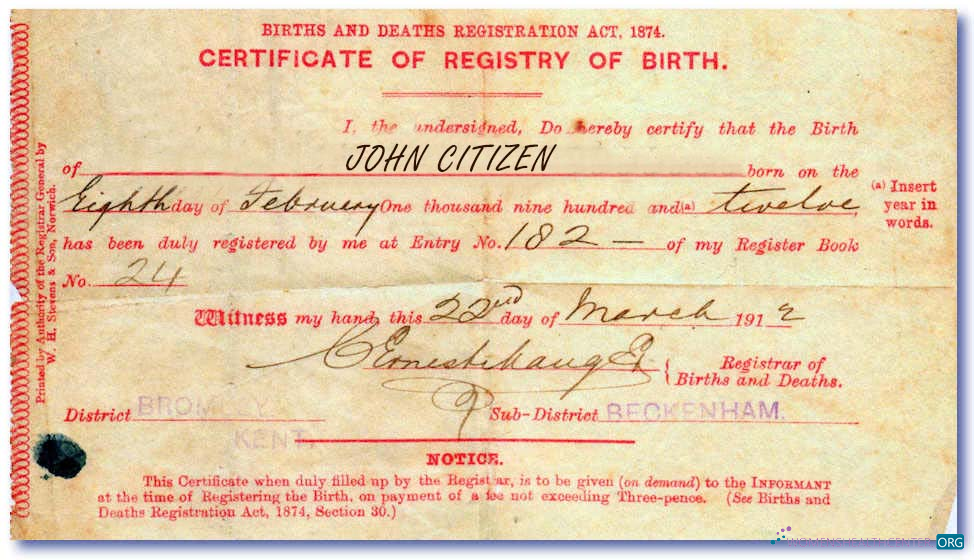 BIRTHS AND DEATHS REGISTRATION ACT, 1874.
CERTIFICATE OF REGISTRY OF BIRTH.
I, the undersigned, Do hereby certify that the Birth
of JOHN CITIZEN born on the
Eighth day of February One thousand nine hundred and (a) twelve
(a) Insert
year in
words.
has been duly registered by me at Entry No. 182 — of my Register Book
No. 24
Witness my hand, this 22nd day of March 1912
Registrar of
Births and Deaths.
District BROMLEY Sub-District BECKENHAM.
KENT.
NOTICE.
This Certificate when duly filled up by the Registrar, is to be given (on demand) to the INFORMANT
at the time of Registering the Birth, on payment of a fee not exceeding Three-pence. (See Births and
Deaths Registration Act, 1874, Section 30.)
Printed by Authority of the Registrar General by
W. H. Stevens & Son, Norwich.
ORG